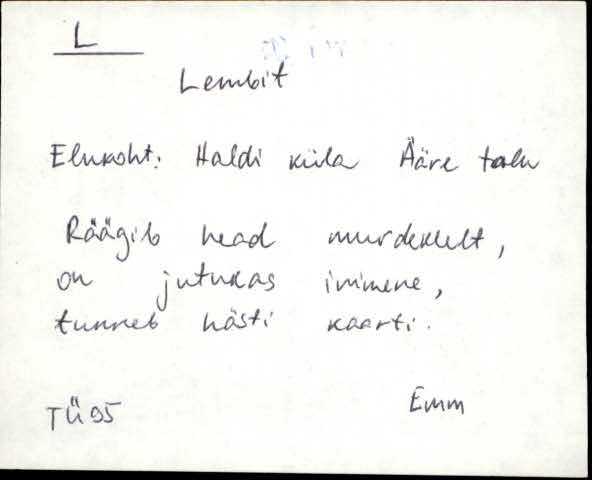 L
Lembit
Elukoht: Haldi küla Ääre talu
Räägib head murdekelt,
on jutukas inimene,
tunneb hästi kaarti.
TÜ 95 Emm